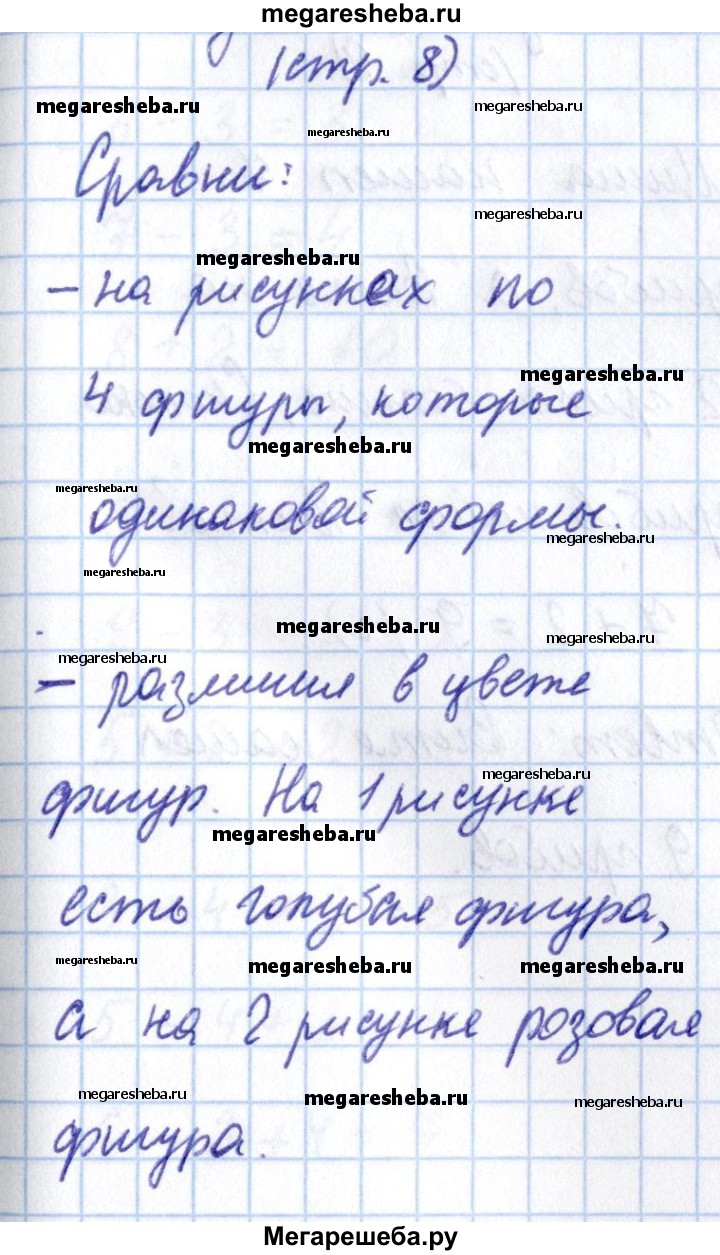 megaresheba.ru
(стр. 8)
megaresheba.ru megaresheba.ru
megaresheba.ru
Сравни:
megaresheba.ru
megaresheba.ru
– на рисунках по
megaresheba.ru
4 фигуры, которые
megaresheba.ru
megaresheba.ru
одинаковой формы.
megaresheba.ru
megaresheba.ru
megaresheba.ru
megaresheba.ru
megaresheba.ru
– различия в цвете
megaresheba.ru
фигур. На 1 рисунке
megaresheba.ru
есть голубая фигура,
megaresheba.ru megaresheba.ru megaresheba.ru
а на 2 рисунке розовая
megaresheba.ru megaresheba.ru megaresheba.ru
фигура.
Мегарешеба.ру